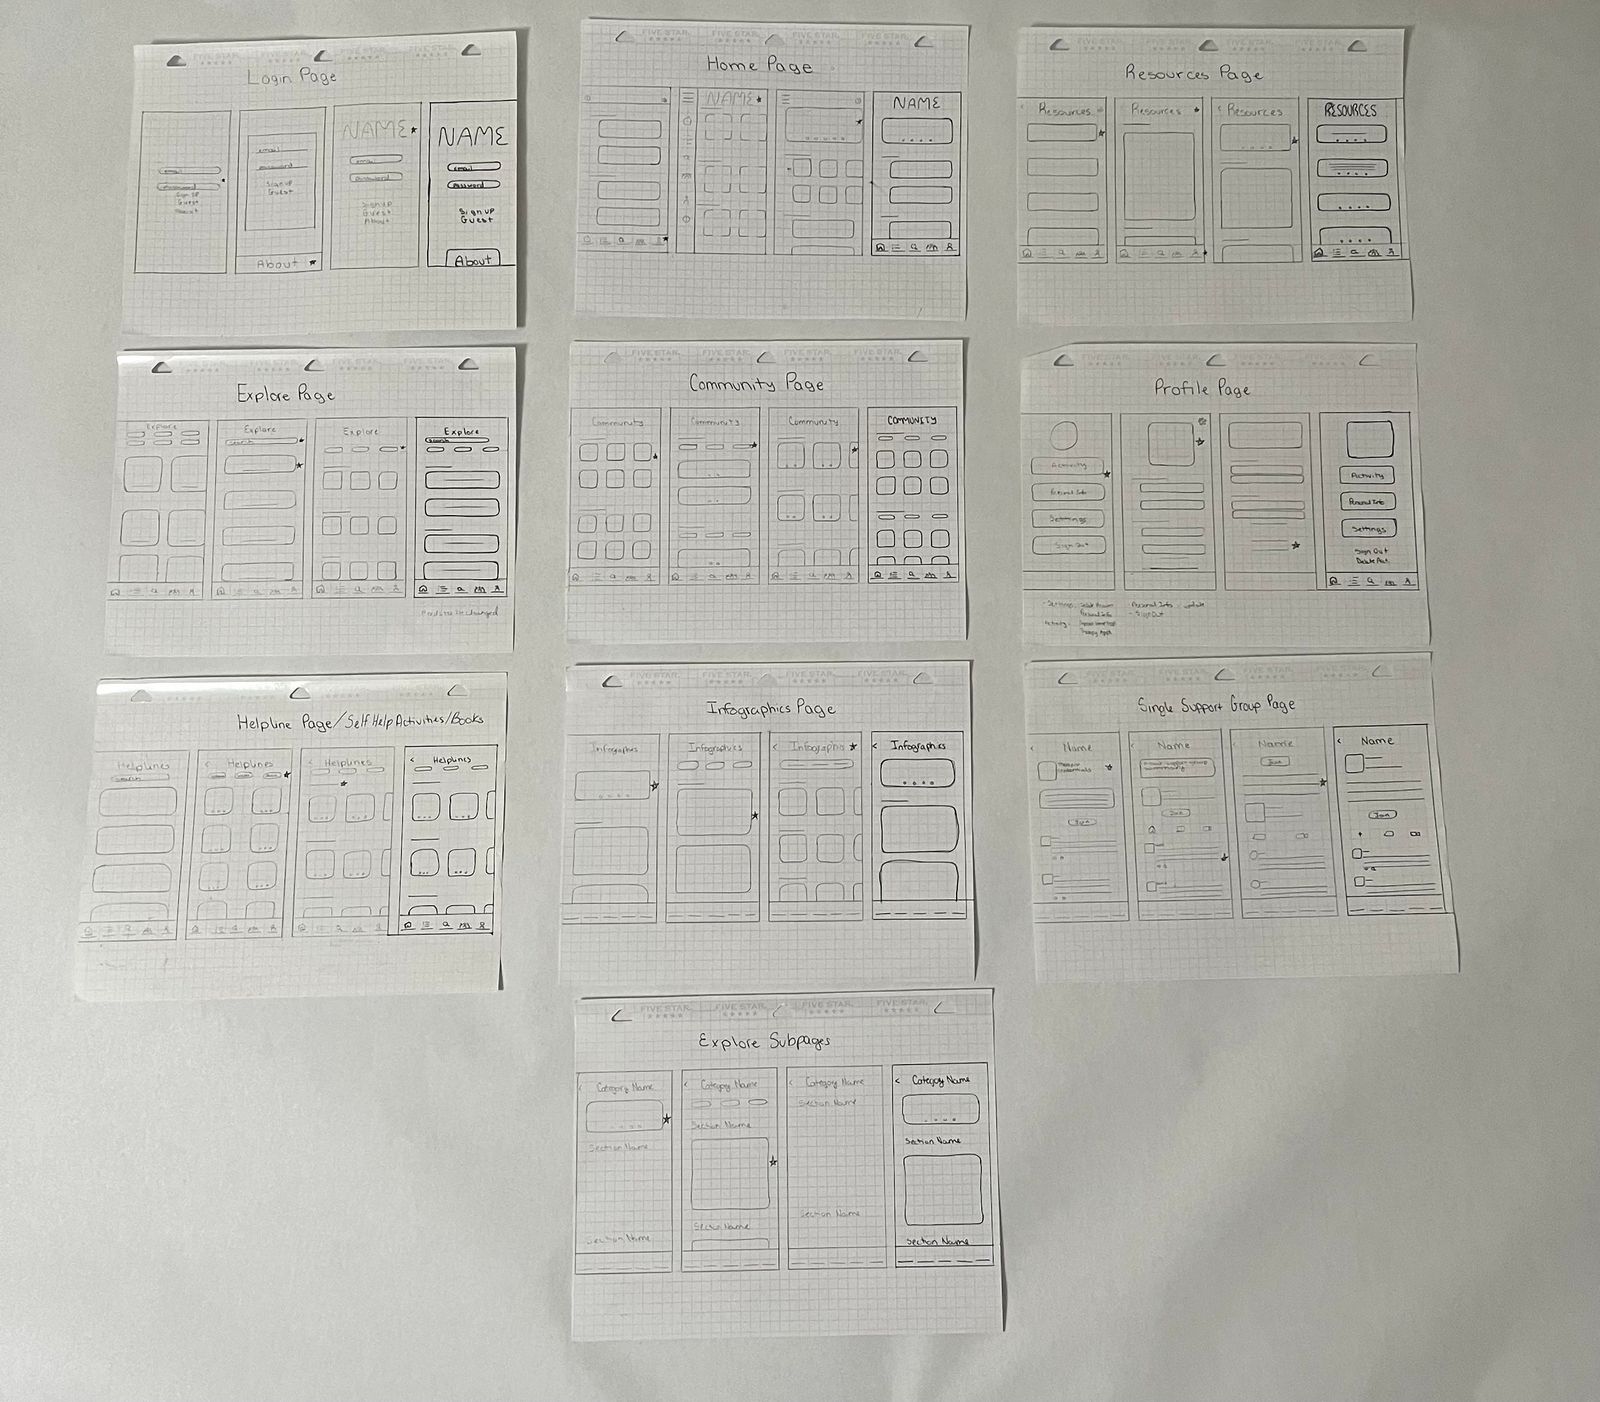 FIVE STAR.
FIVE STAR.
FIVE STAR.
Login Page
email
Password
Sign up
Guest
About
email
password
Sign up
Guest
About
NAME
email
Password
Sign up
Guest
About
NAME
email
Password
Sign up
Guest
About
FIVE STAR.
FIVE STAR.
FIVE STAR.
Home Page
NAME
NAME
FIVE STAR.
FIVE STAR.
FIVE STAR.
Resources Page
Resources
Resources
< Resources
RESOURCES
FIVE STAR.
FIVE STAR.
Explore Page
Explore
Explore
Search
Explore
Explore
Search
FIVE STAR.
FIVE STAR.
FIVE STAR.
FIVE STAR.
Community Page
Community
Community
Community
COMMUNITY
FIVE STAR.
FIVE STAR.
Profile Page
Activity
Personal Info
Settings
Sign Out
Activity
Personal Info
Settings
Sign Out
Delete Acct.
Helpline Page/Self Help Activities/Books
Helplines
Search
< Helplines
< Helplines
< Helplines
FIVE STAR.
FIVE STAR.
FIVE STAR.
Infographics Page
Infographics
Infographics
< Infographics
< Infographics
FIVE STAR.
FIVE STAR.
Single Support Group Page
< Name
Join
< Name
Join
< Name
Join
< Name
Join
FIVE STAR.
FIVE STAR.
FIVE STAR.
FIVE STAR.
Explore Subpages
< Category Name
Section Name
Section Name
< Category Name
Section Name
Section Name
< Category Name
Section Name
Section Name
< Category Name
Section Name
Section Name